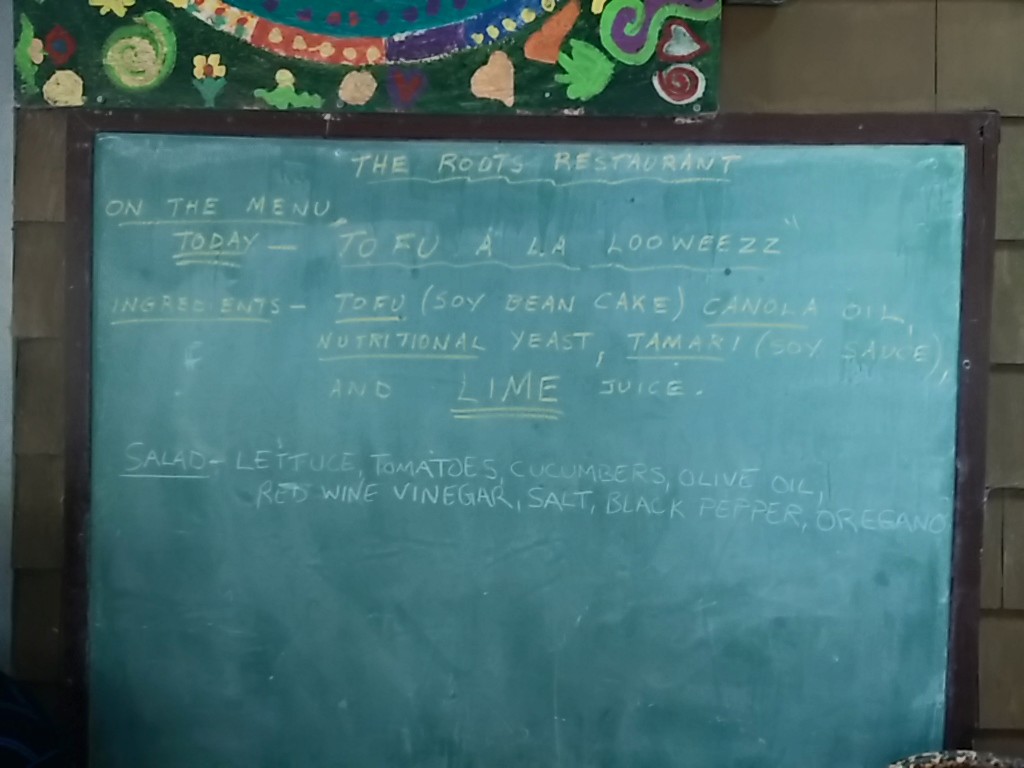 THE ROOTS RESTAURANT
ON THE MENU
TODAY — "TOFU À LA LOOWEEZZ"
INGREDIENTS — TOFU (SOY BEAN CAKE) CANOLA OIL,
NUTRITIONAL YEAST, TAMARI (SOY SAUCE),
AND LIME JUICE.
SALAD - LETTUCE, TOMATOES, CUCUMBERS, OLIVE OIL,
RED WINE VINEGAR, SALT, BLACK PEPPER, OREGANO